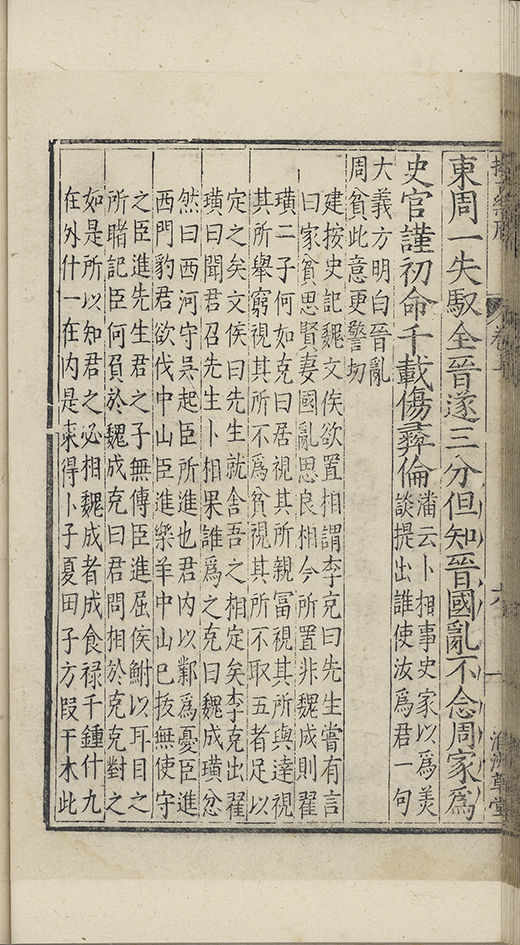 東周一失馭全晉遂三分但知晉國亂不念周家爲
史官謹初命千載傷彝倫
潘云卜相事史家以爲美
談提出誰使汝爲君一句
大義方明白晉亂
周貧此意更警切
建按史記魏文侯欲置相謂李克曰先生嘗有言
曰家貧思賢妻國亂思良相今所置非魏成則翟
璜二子何如克曰居視其所親冨視其所與達視
其所舉窮視其所不爲貧視其所不取五者足以
定之矣文侯曰先生就舍吾之相定矣李克出翟
璜曰聞君召先生卜相果誰爲之克曰魏成璜忿
然曰西河守吳起臣所進也君内以鄴爲憂臣進
西門豹君欲伐中山臣進樂羊中山已抜無使守
之臣進先生君之子無傅臣進屈侯鮒以耳目之
所睹記臣何負於魏成克曰君問相於克克對之
如是所以知君之必相魏成者成食禄千鍾什九
在外什一在内是東得卜子夏田子方段干木此